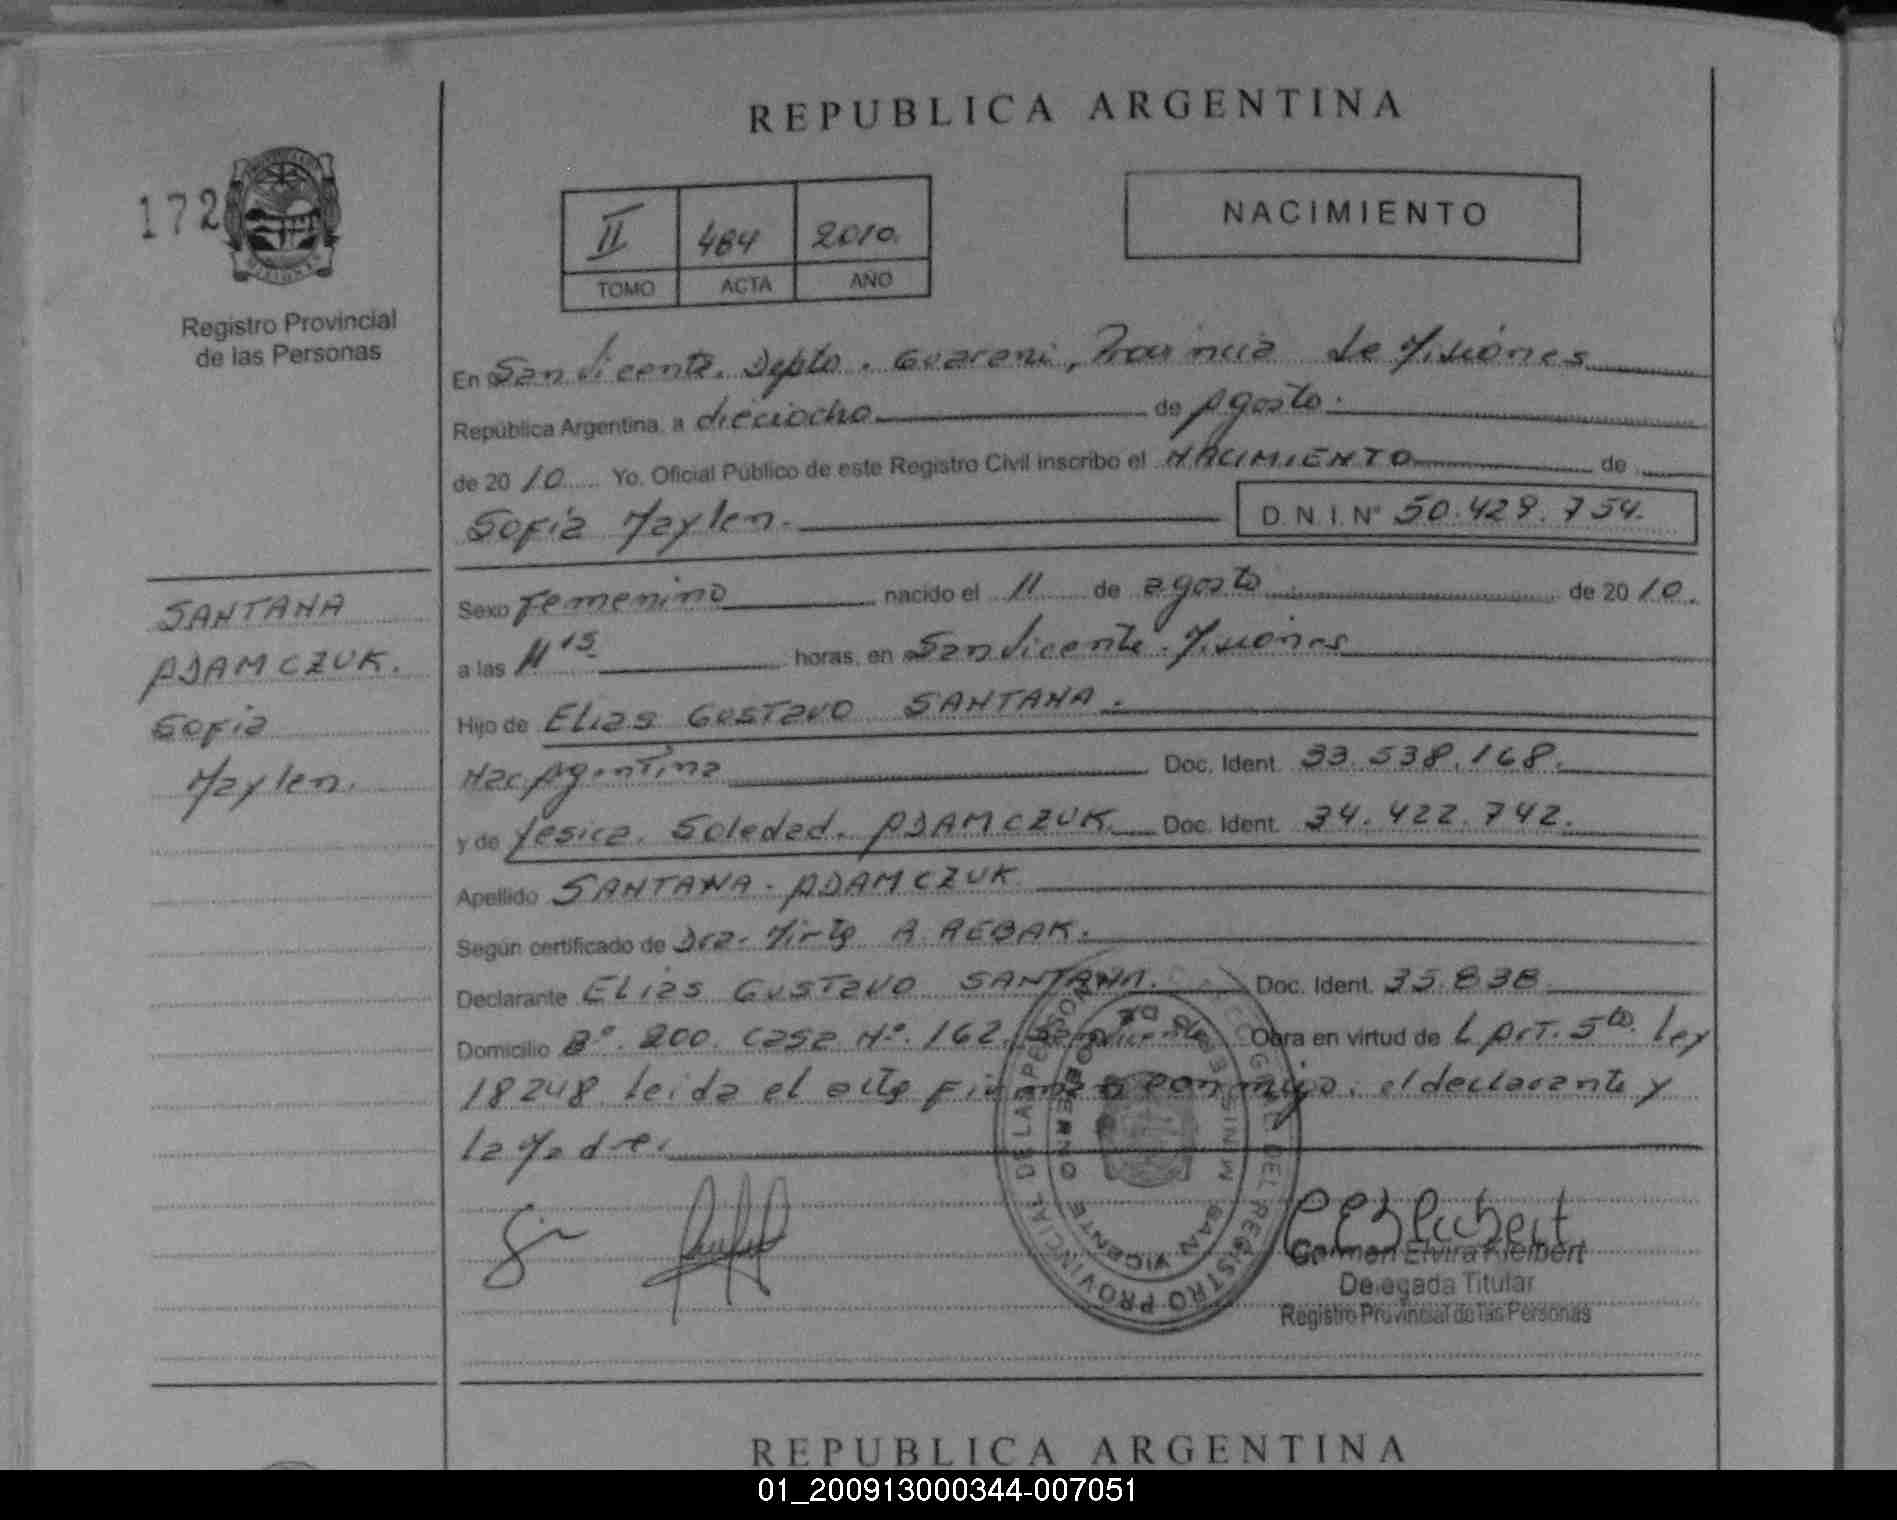 REPUBLICA ARGENTINA
172
II 484 2010.
TOMO ACTA AÑO
NACIMIENTO
Registro Provincial
de las Personas
En San Vicente. Depto. Guarani, Provincia de Misiones
República Argentina, a dieciocho de Agosto.
de 20 10 Yo, Oficial Público de este Registro Civil inscribo el NACIMIENTO de
Sofia Maylen. D. N. I. Nº 50.429.754.
SANTANA
ADAMCZUK.
Sofia
Maylen.
Sexo Femenino nacido el 11 de agosto de 20 10.
a las 11 15 horas, en San Vicente. Misiones
Hijo de Elias Gustavo SANTANA.
Nac Agentina Doc. Ident. 33.538.168.
y de Yesica. Soledad. ADAMCZUK Doc. Ident. 34.422.742.
Apellido SANTANA. ADAMCZUK
Según certificado de Dra. Mirta A. REBAK.
Declarante Elias Gustavo SANTANA. Doc. Ident. 35.838
Domicilio Bº. 200. Casa Nº. 162. San Vicente Obra en virtud de L Art. 5to. Ley
18248. leida el acta firman conmigo. el declarante y
la Madre.
REGISTRO PROVINCIAL DE LAS PERSONAS
SAN VICENTE
Carmen Elvira Kleibert
Delegada Titular
Registro Provincial de las Personas
REPUBLICA ARGENTINA
01_200913000344-007051